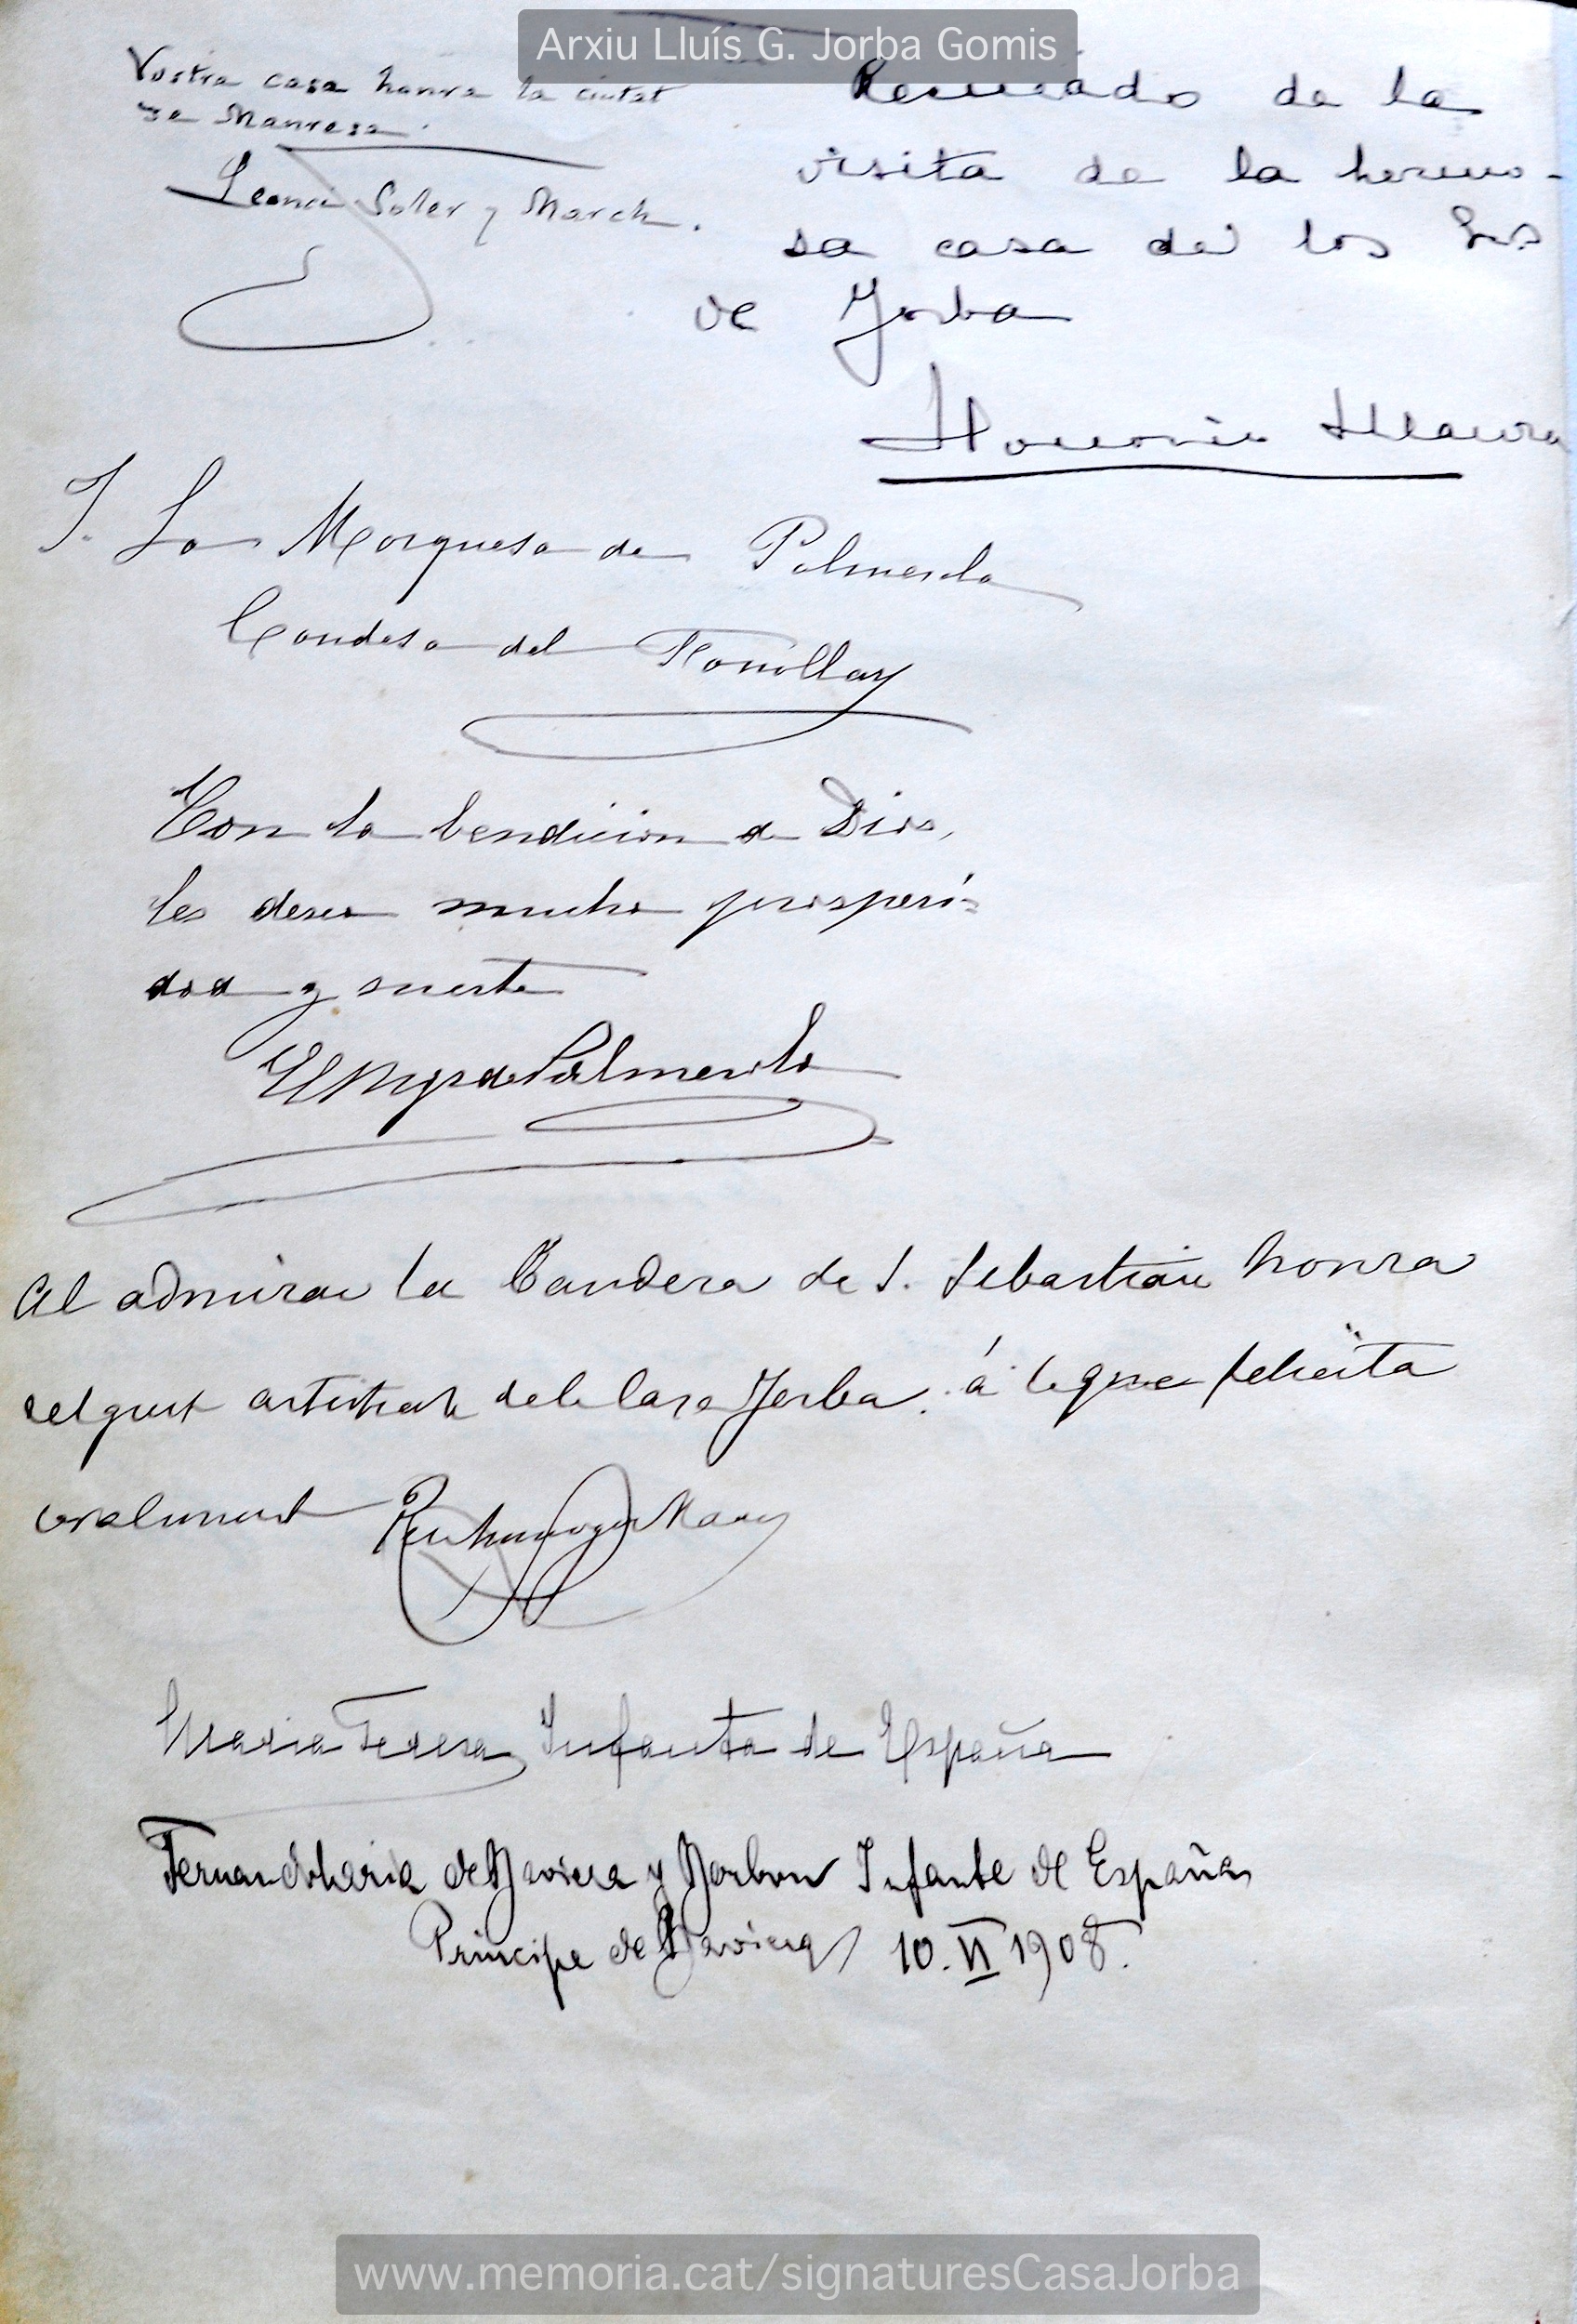 Arxiu Lluís G. Jorba Gomis
Vostra casa honra la ciutat
de Manresa.
Leonci Soler y March.
de la
visita de la hermo-
sa casa de los Srs
de Jorba
Honorio Maura
T. La Marquesa de Palmerola
Condesa del Fonollar
Con la bendicion de Dios,
les deseo mucha prosperi-
dad y suerte
El Mqs de Palmerola
Al admirar la bandera de S. Sebastian honra
del gust artistich de la Casa Jorba. á la que felicita
coralment
Maria Teresa Infanta de España
Fernando Maria de Baviera y Borbon Infante de España
Principe de Baviera 10. VI 1908.
www.memoria.cat/signaturesCasaJorba